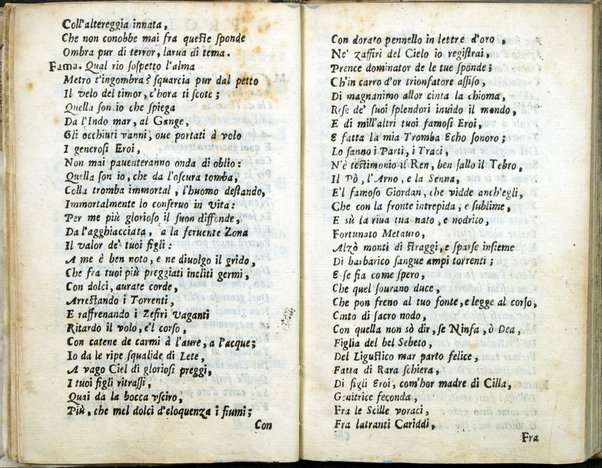 Coll'altereggia innata,
Che non conobbe mai fra queste sponde
Ombra pur di terror, larua di tema.
Fama. Qual rio sospetto l'alma
Metro t'ingombra? squarcia pur dal petto
Il velo del timor, c'hora ti scote;
Quella son io che spiega
Da l'Indo mar, al Gange,
Gli occhiuti vanni, oue portati à volo
I generosi Eroi,
Non mai pauenteranno onda di oblio:
Quella son io, che da l'oscura tomba,
Colla tromba immortal, l'huomo destando,
Immortalmente lo conseruo in Vita:
Per me più glorioso il suon diffonde,
Da l'agghiacciata, a la feruente Zona
Il valore de' tuoi figli:
A me è ben noto, e ne diuolgo il grido,
Che fra tuoi più preggiati incliti germi,
Con dolci, aurate corde,
Arrestando i Torrenti,
E raffrenando i Zefiri Vaganti
Ritardò il volo, e'l corso,
Con catene de carmi à l'aure, a l'acque;
Io da le ripe squalide di Lete,
A vago Ciel di gloriosi preggi,
I tuoi figli ritrassi,
Quai da la bocca vsciro,
Più, che mel dolci d'eloquenza i fiumi;
Con
Con dorato pennello in lettre d'oro,
Ne' zaffiri del Cielo io registrai,
Prence dominator de le tue sponde;
Ch'in carro d'or trionfatore assiso,
Di magnanimo allor cinta la chioma,
Rese de' suoi splendori inuido il mondo,
E di mill'altri tuoi famosi Eroi,
E fatta la mia Tromba Echo sonoro;
Lo sanno i Parti, i Traci,
N'è testimonio il Ren, ben sallo il Tebro,
Il Pò, l'Arno, e la Senna,
E'l famoso Giordan, che vidde anch'egli,
Che con la fronte intrepida, e sublime,
E sù la riua tua nato, e nodrito,
Fortunato Metauro,
Alzò monti di straggi, e sparse insieme
Di barbarico sangue ampi torrenti;
E se fia come spero,
Che quel sourano duce,
Che pon freno al tuo fonte, e legge al corso,
Cinto di sacro nodo,
Con quella non sò dir, se Ninfa, ò Dea,
Figlia del bel Sebeto,
Del Ligustico mar parto felice,
Fatta di Rara schiera,
Di figli Eroi, com'hor madre di Cilla,
Genitrice feconda,
Fra le Scille voraci,
Fra latranti Cariddi,
Fra